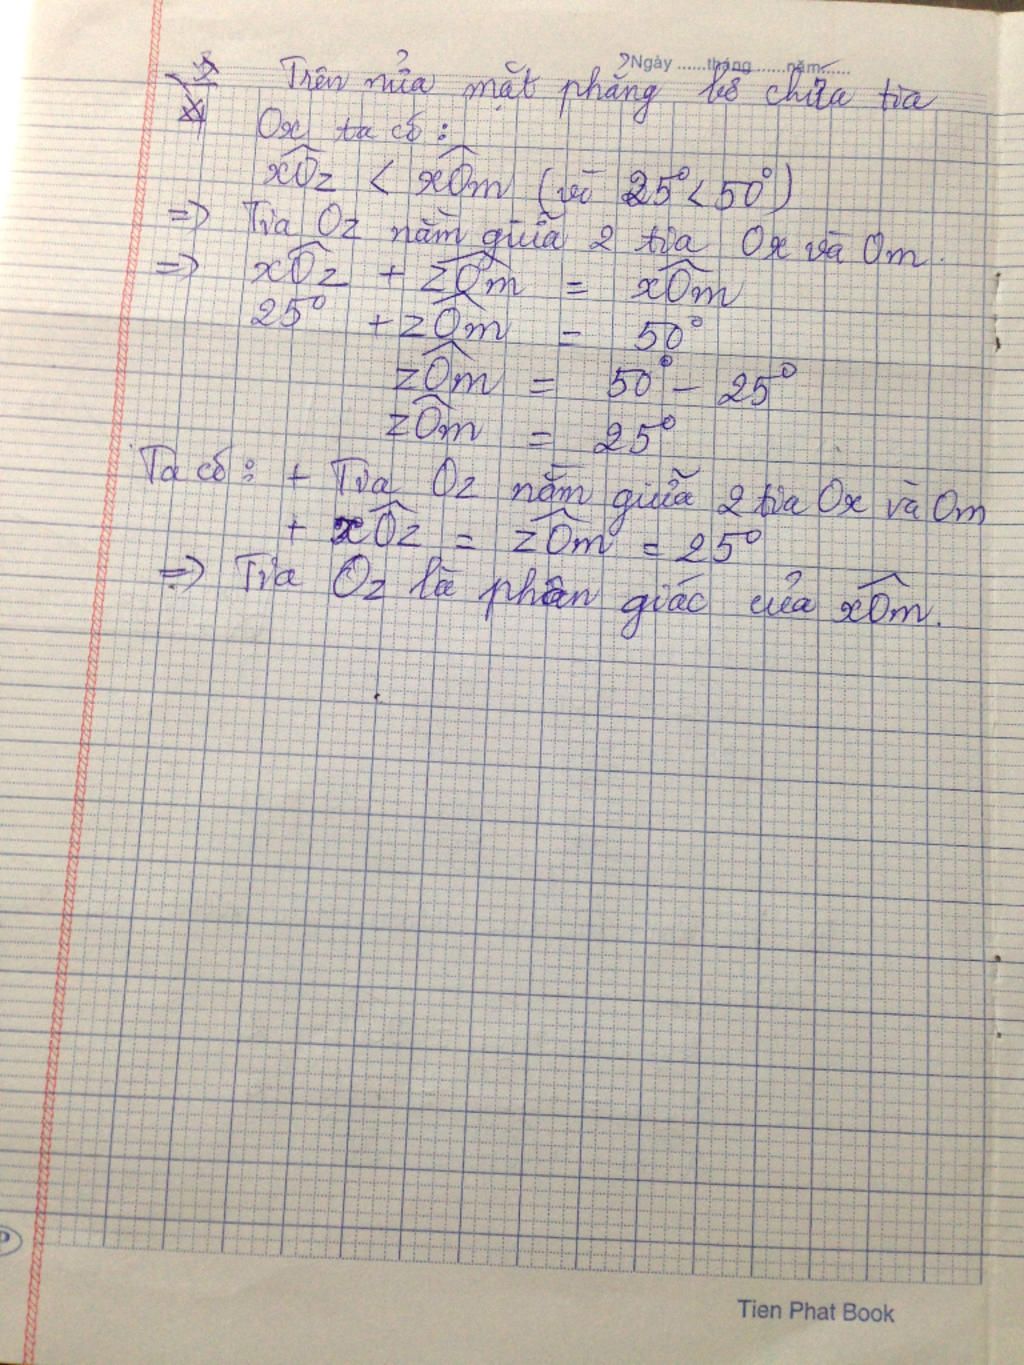 Ngày ...... tháng ...... năm ......
Trên nửa mặt phẳng bờ chứa tia
Ox ta có :
xÔz < xÔm (vì 25° < 50°)
=> Tia Oz nằm giữa 2 tia Ox và Om.
=> xÔz + zÔm = xÔm
25° + zÔm = 50°
zÔm = 50° - 25°
zÔm = 25°
Ta có : + Tia Oz nằm giữa 2 tia Ox và Om
+ xÔz = zÔm = 25°
=> Tia Oz là phân giác của xÔm.
Tien Phat Book